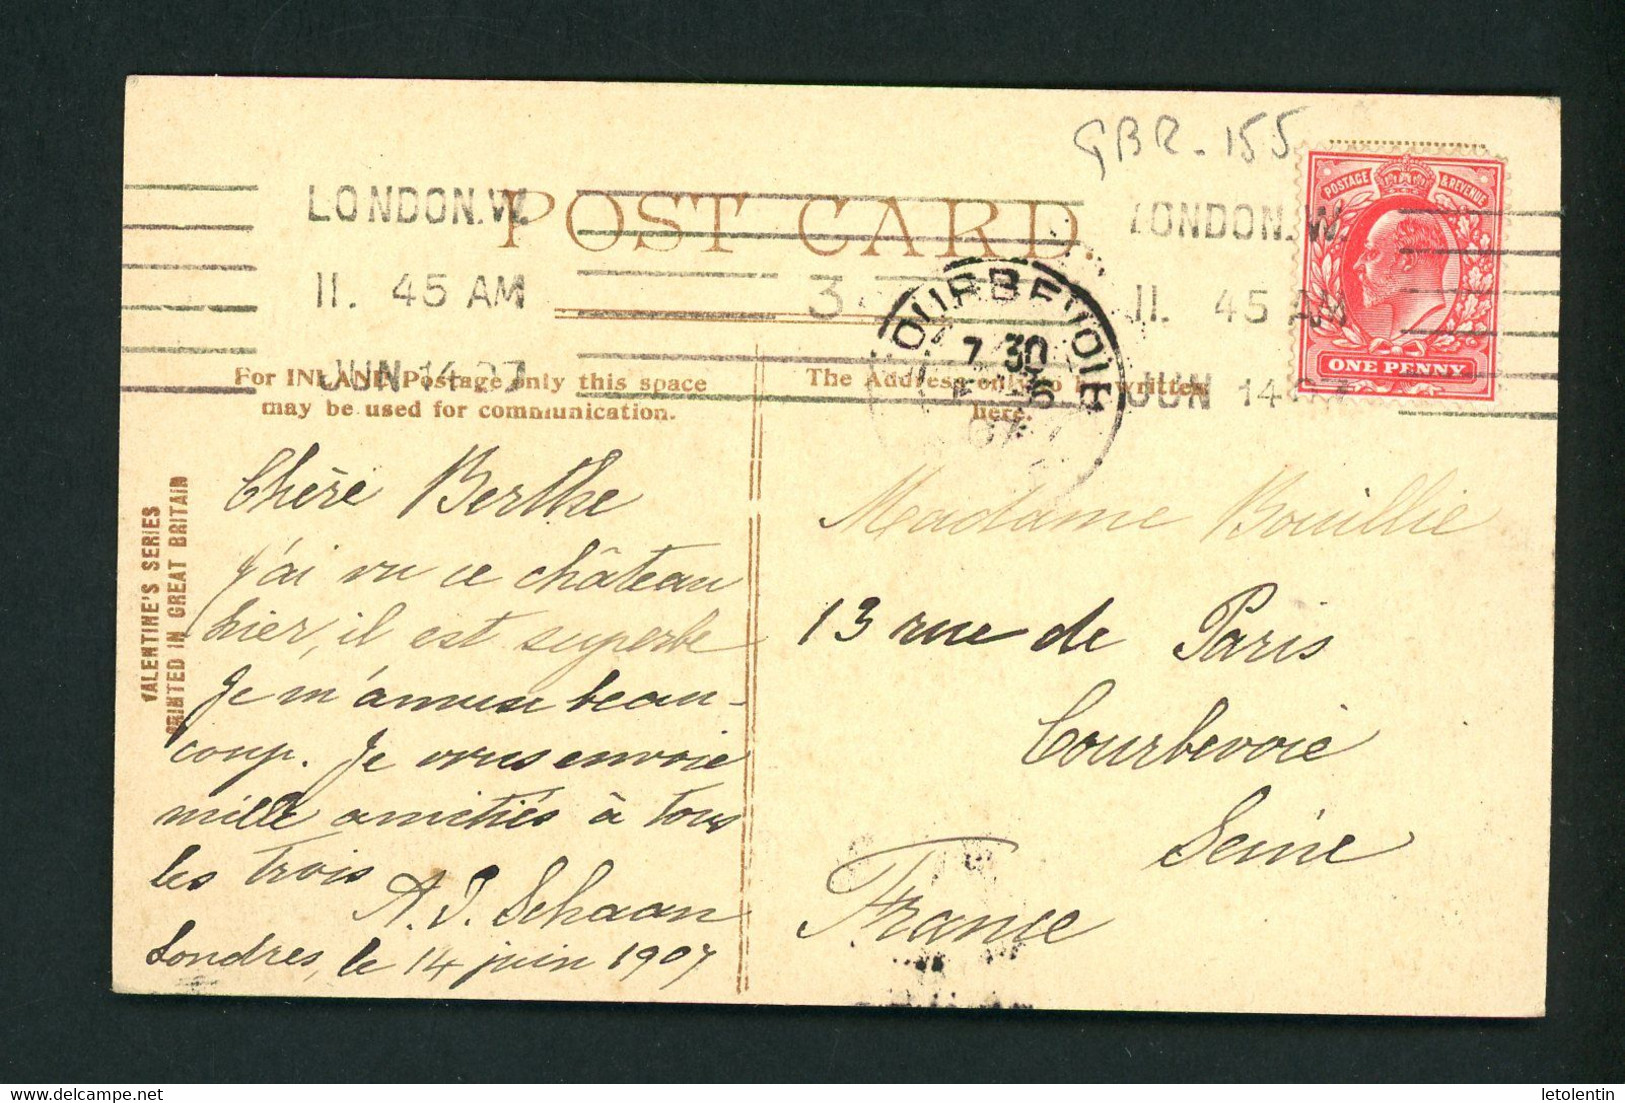 GBR-155
POSTAGE & REVENUE
ONE PENNY
LONDON.W.
11. 45 AM
JUN 14 07
POST CARD.
3
LONDON.W.
11. 45 AM
JUN 14 07
7 30
For INLAND Postage only this space
may be used for communication.
The Address only to be written
here.
VALENTINE'S SERIES
PRINTED IN GREAT BRITAIN
Chère Berthe
j'ai vu ce château
hier, il est superbe
Je m'amuse beau-
coup. Je vous envoie
mille amitiés à tous
les trois
A. J. Schaan
Londres, le 14 juin 1907
Madame Bouillie
13 rue de Paris
Courbevoie
Seine
France
letolentin